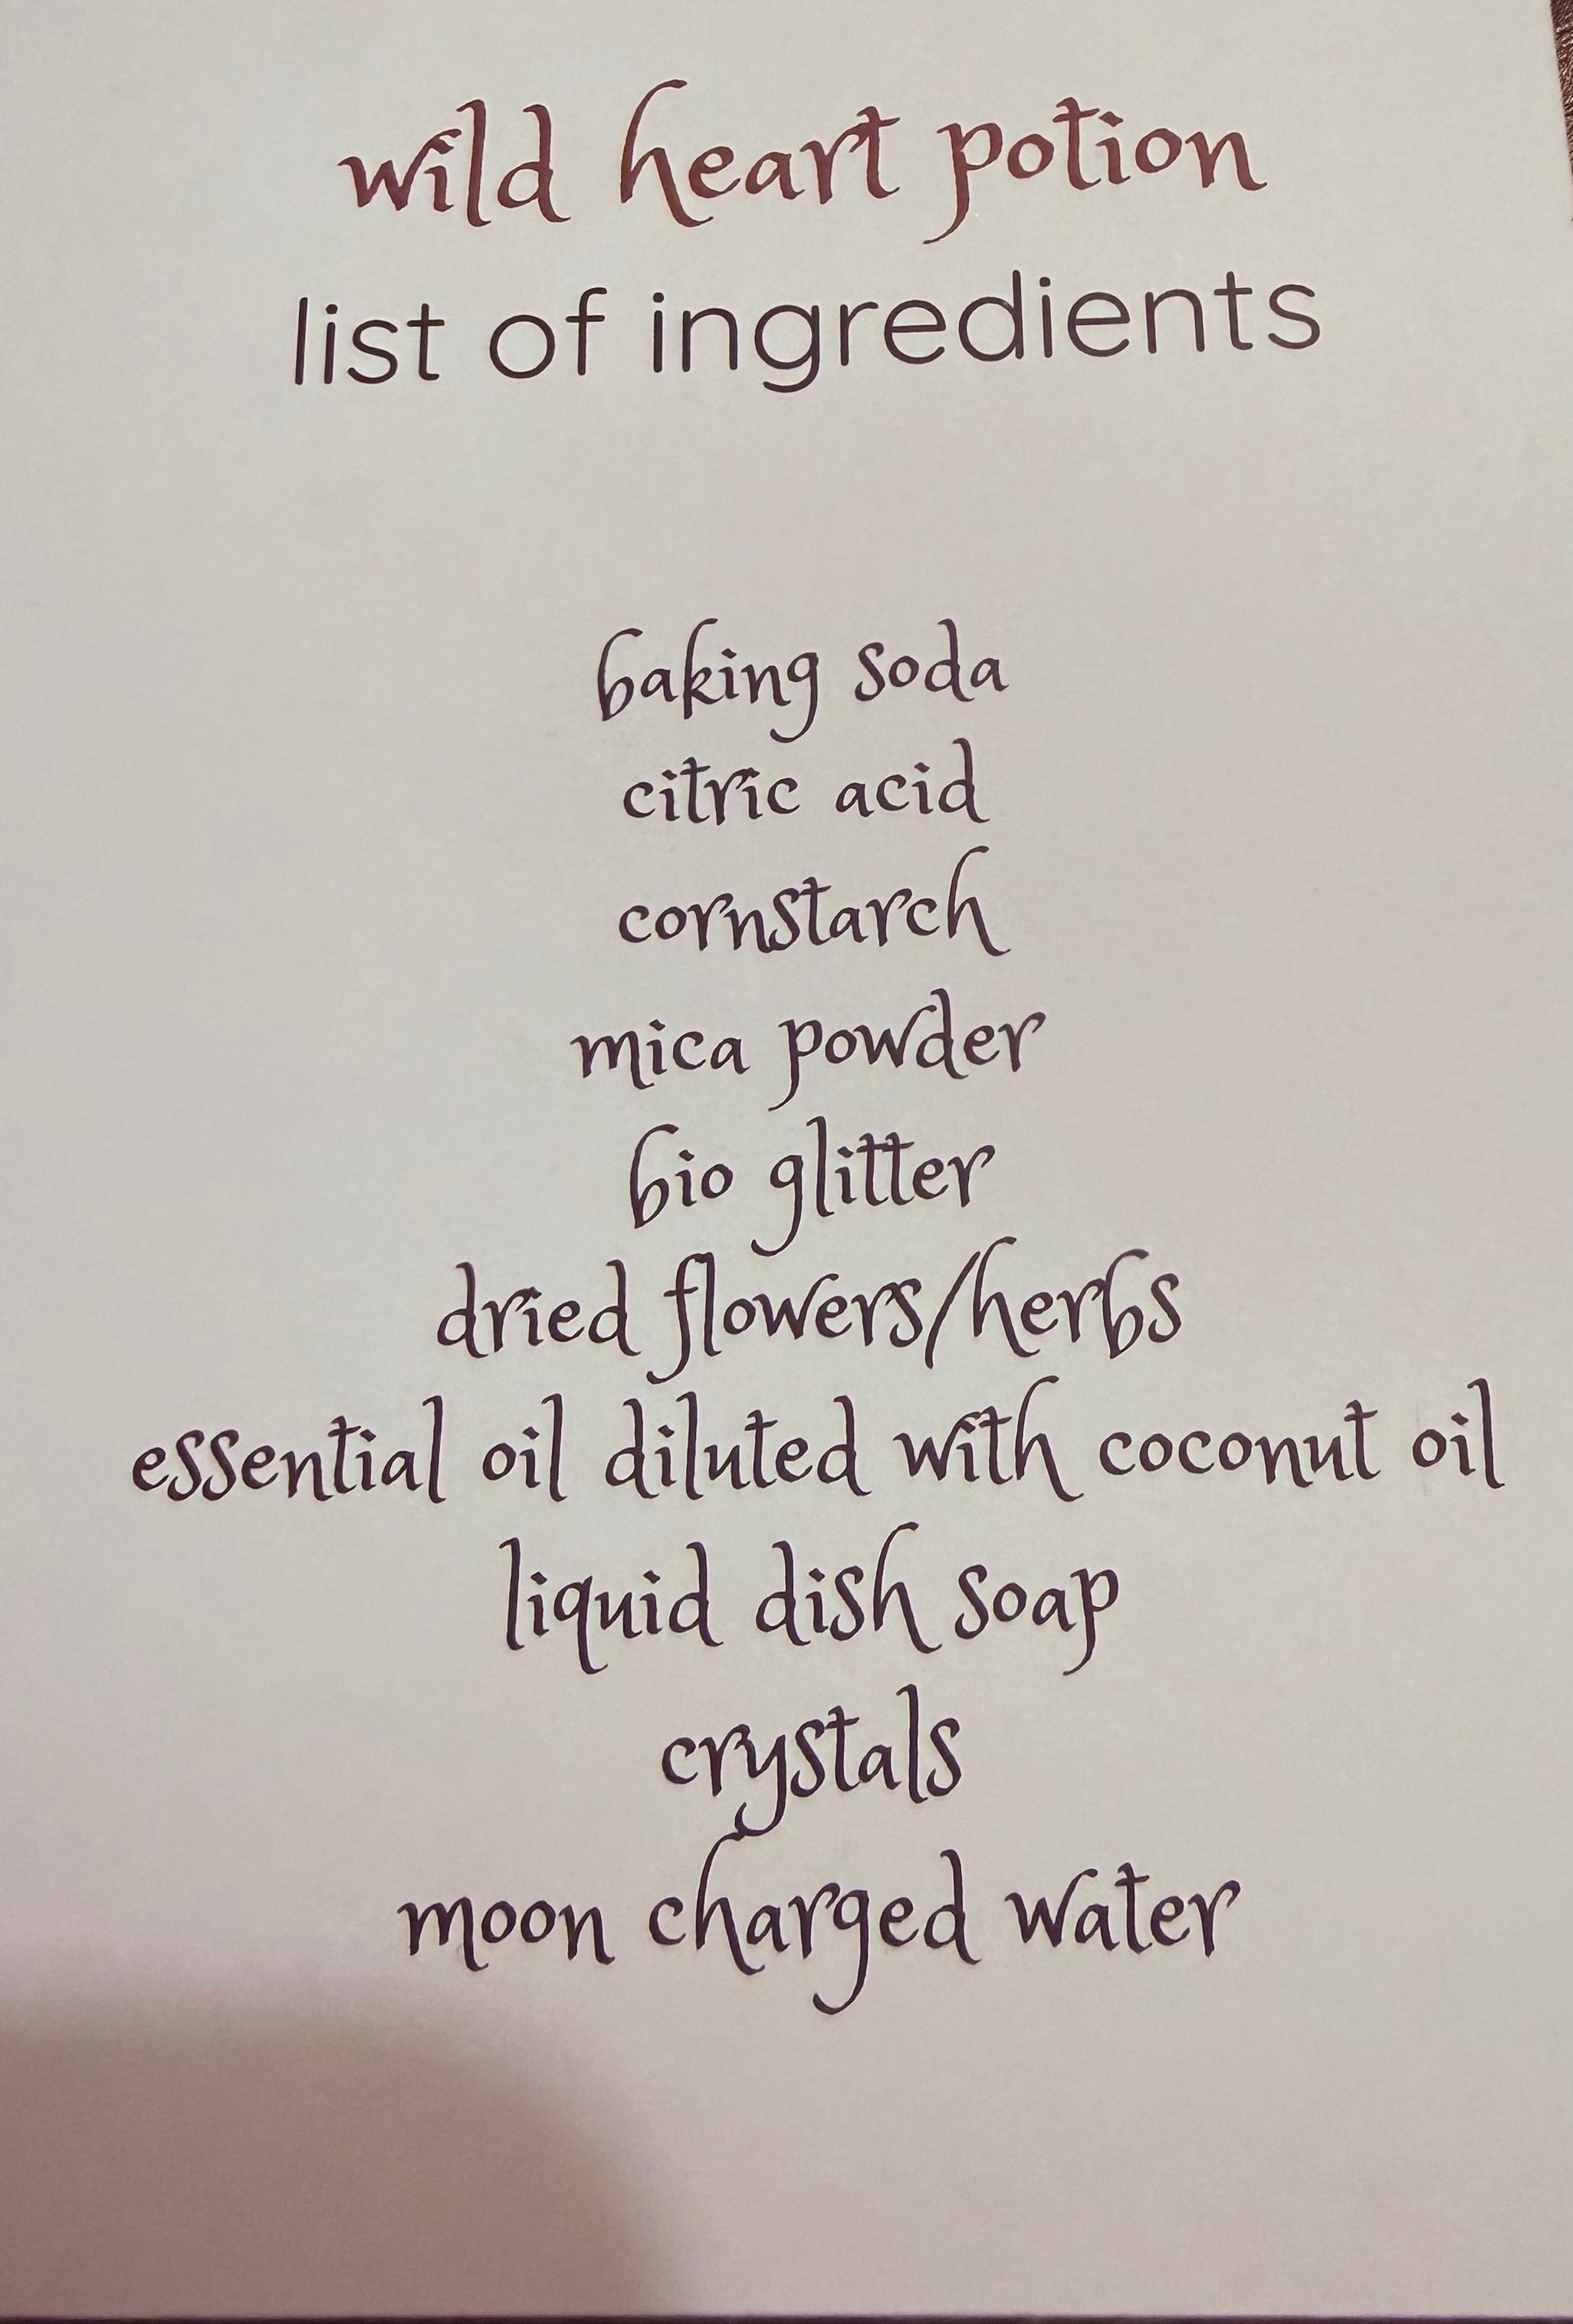 wild heart potion
list of ingredients
baking soda
citric acid
cornstarch
mica powder
bio glitter
dried flowers/herbs
essential oil diluted with coconut oil
liquid dish soap
crystals
moon charged water